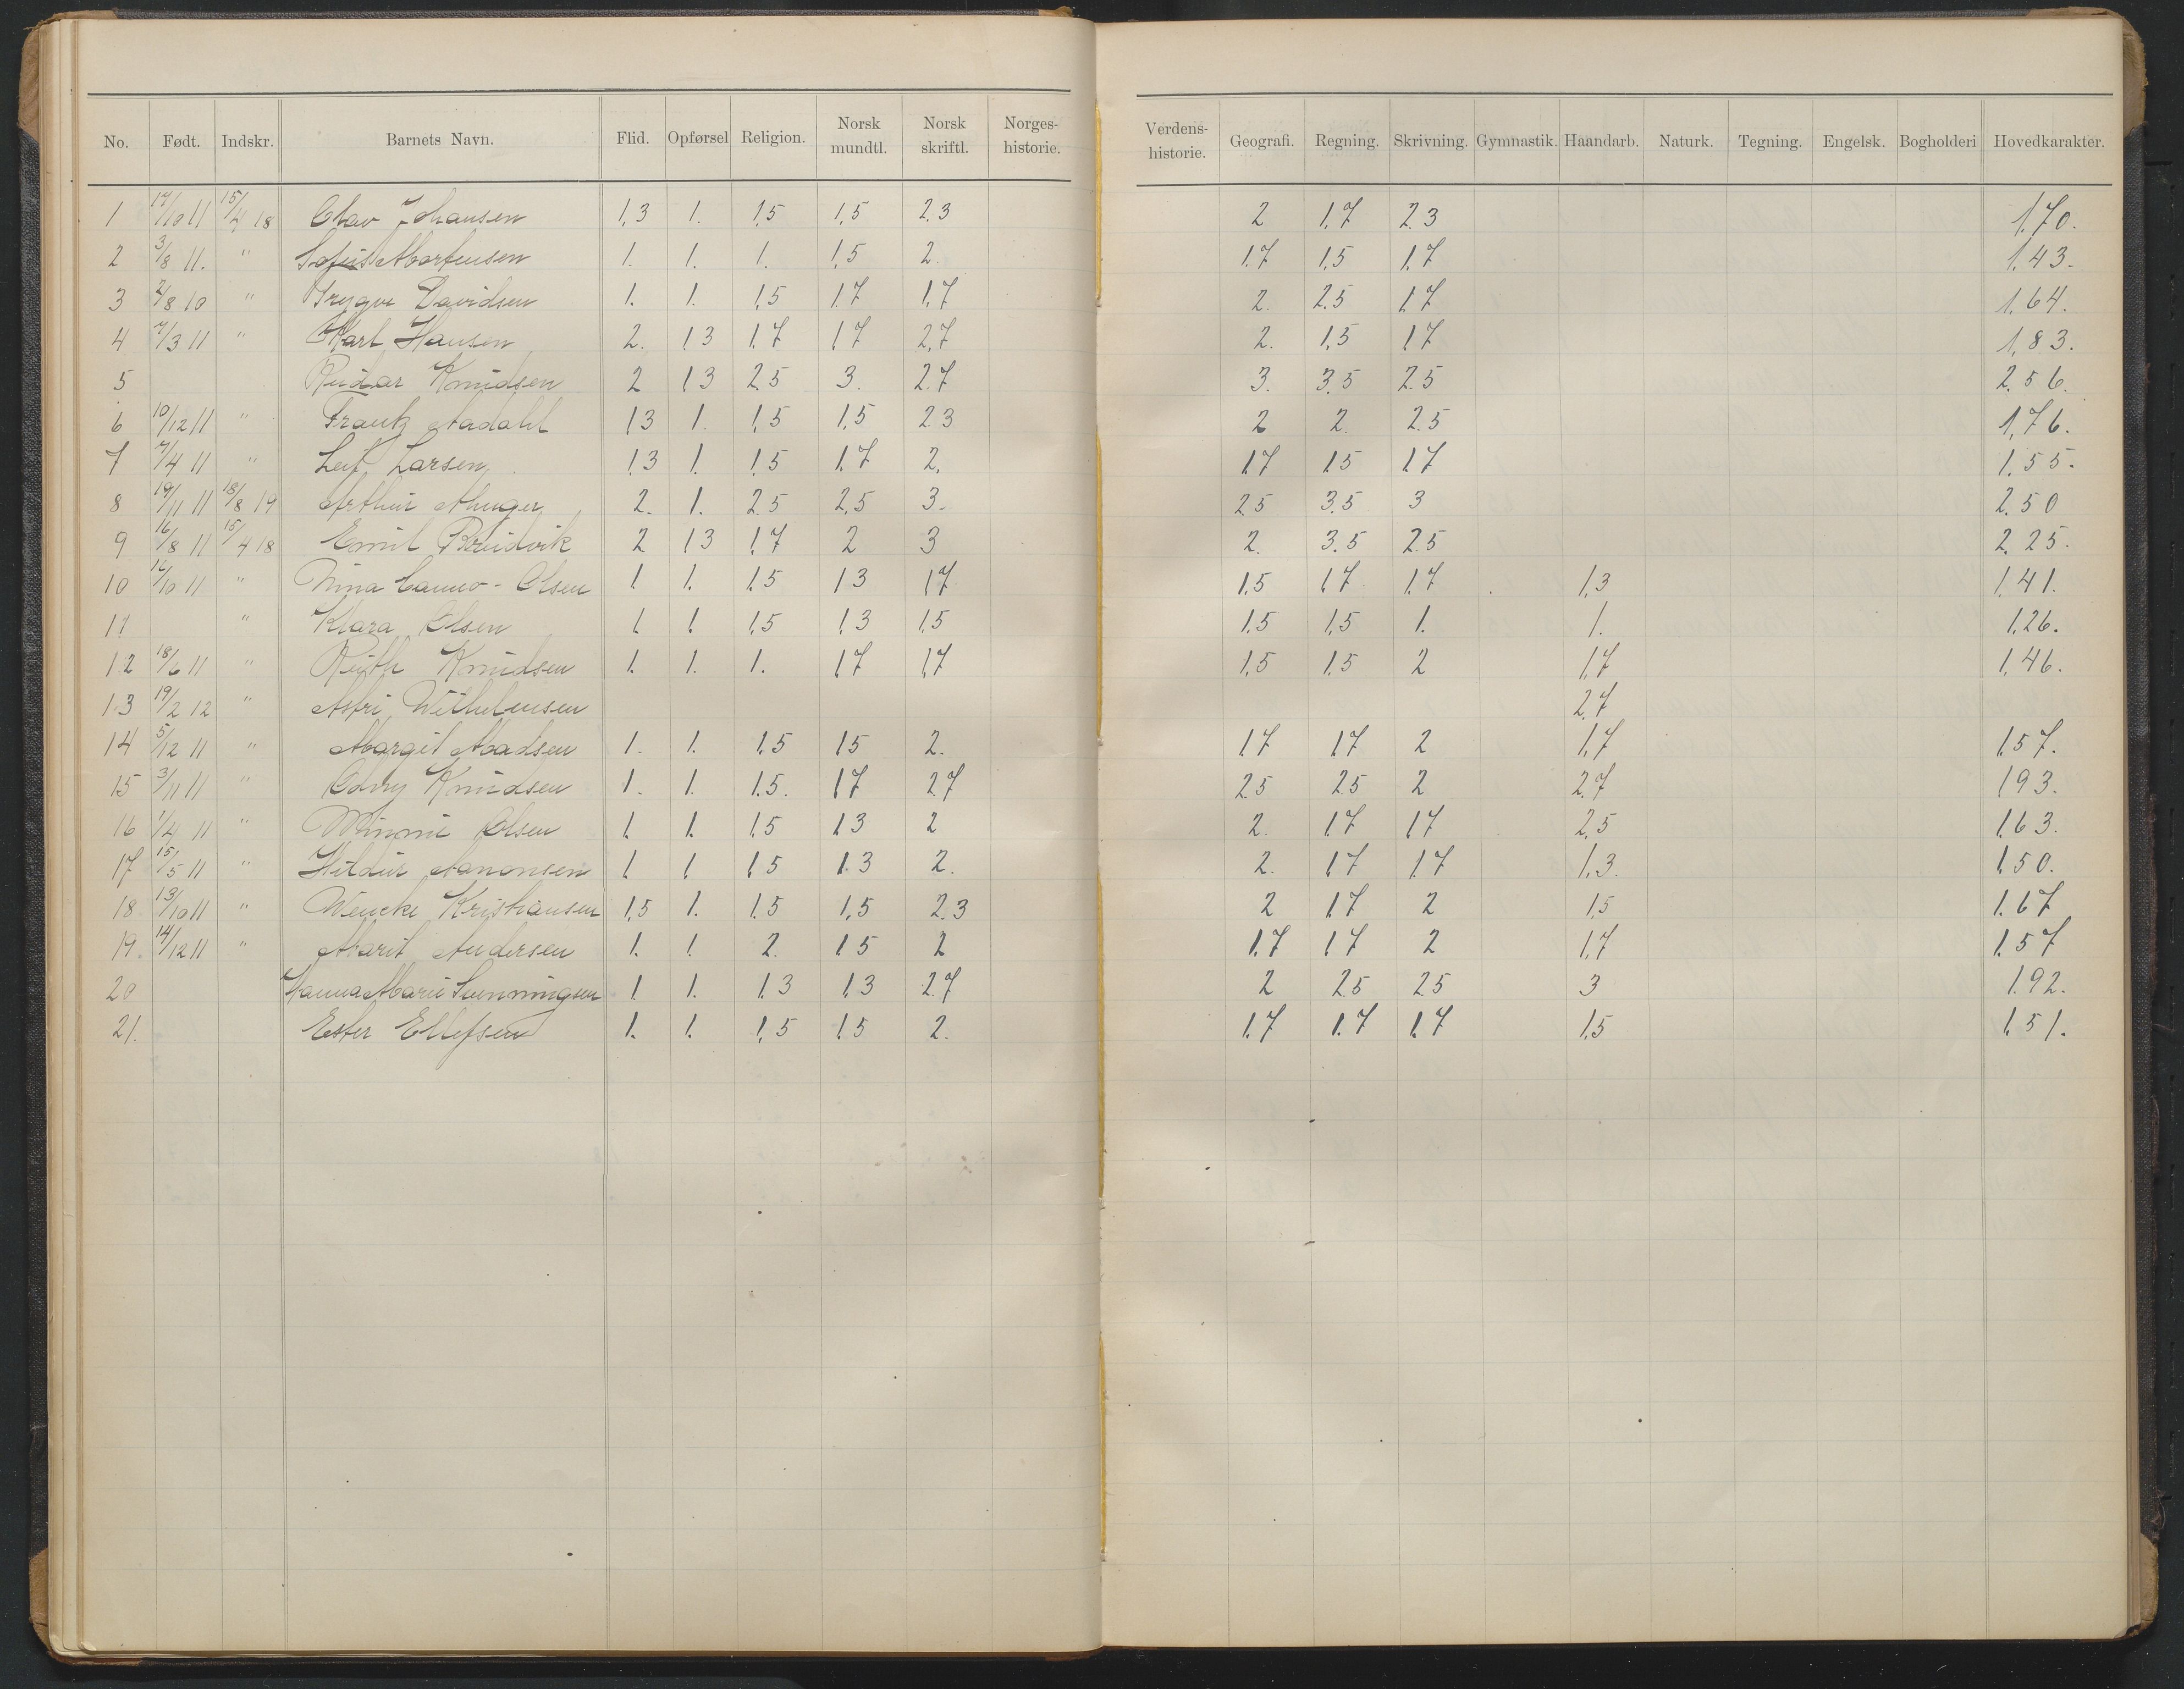 No. Født. Indskr. Barnets Navn. Flid. Opførsel Religion. Norsk mundtl. Norsk skriftl. Norges-historie. Verdens-historie. Geografi. Regning. Skrivning. Gymnastik. Haandarb. Naturk. Tegning. Engelsk. Bogholderi Hovedkarakter.
1 17/10 11 15/4 18 Olav Johansen 1,3 1. 1,5 1,5 2.3 2 1,7 2.3 1,70.
2 3/8 11. " Sofus Mortensen 1. 1. 1. 1,5 2. 1.7 1,5 1,7 1,43.
3 2/8 10 " Trygve Davidsen 1. 1. 1,5 1,7 1,7 2. 2.5 1,7 1,64.
4 7/3 11 " Karl Hansen 2. 1 3 1,7 1,7 2,7 2. 1,5 1,7 1,83.
5 Reidar Knudsen 2 1 3 2 5 3. 2.7 3. 3.5 2.5 2.56.
6 10/12 11 " Frantz Aadahl 1 3 1. 1,5 1.5 2 3 2 2. 2.5 1,76.
7 7/4 11 " Leif Larsen 1.3 1. 1.5 1.7 2. 1.7 1 5 1.7 1.55.
8 19/11 11 18/8 19 Arthur 2. 1. 2.5 2,5 3. 2.5 3.5 3 2.50
9 16/8 11 15/4 18 Emil Breidvik 2 1 3 1,7 2 3 2. 3.5 2.5 2.25.
10 16/10 11 " Nina - Olsen 1 1. 1.5 1 3 1,7 1,5 1,7 1,7 1,3 1,41.
11 " Klara Olsen 1. 1. 1,5 1.3 1,5 1.5 1,5 1. 1. 1,26.
12 18/6 11 " Ruth Knudsen 1. 1. 1. 1,7 1,7 1,5 1.5 2 1,7 1,46.
13 19/2 12 " Astri Wilhelmsen 2,7
14 5/12 11 " Margit Madsen 1. 1. 1.5 1 5 2. 1.7 1.7 2 1,7 1.57.
15 3/11 11 " Odny Knudsen 1. 1. 1.5. 1.7 2.7 2.5 2 5 2 2.7 1 93.
16 1/4 11 " Minni Olsen 1. 1. 1,5 1.3 2 2. 1.7 1.7 2,5 1.63.
17 15/5 11 " Hildur Aanonsen 1 1 1 5 1.3 2. 2. 1.7 1.7 1,3. 1.50.
18 13/10 11 " Wencke Kristiansen 1,5 1. 1.5 1,5 2.3 2 1.7 2 1,5 1.67
19. 14/12 11 " Marit Andersen 1. 1. 2. 1 5 2 1.7 1.7 2 1,7 1.57
20 Hanna Marie Svenningsen 1. 1. 1.3 1.3 2.7 2 2.5 2.5 3 1.92.
21. Ester Ellefsen 1. 1. 1,5 1.5 2. 1.7 1.7 1.7 1,5 1.51.